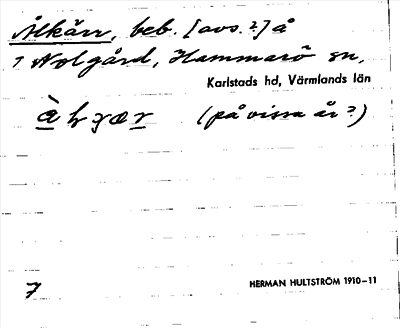 Ålkärr, beb. [avs.?] å
1 Nolgård, Hammarö sn,
Karlstads hd, Värmlands län
(på vissa är?)
7
HERMAN HULTSTRÖM 1910-11